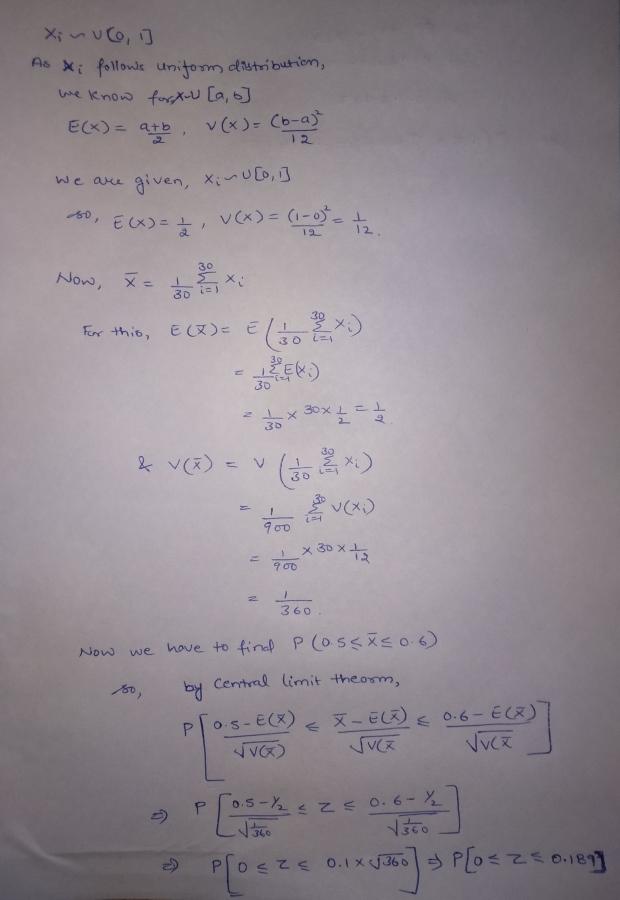 Xi ~ U[0, 1]
As Xi follows uniform distribution,
we know for X~U [a, b]
E(X) = a+b/2 , V(X) = (b-a)²/12
we are given, Xi ~ U[0, 1]
so, E(X) = 1/2 , V(X) = (1-0)²/12 = 1/12.
Now, X̄ = 1/30 30Σi=1 Xi
For this, E(X̄) = E(1/30 30Σi=1 Xi)
= 1/30 30Σi=1 E(Xi)
= 1/30 × 30 × 1/2 = 1/2
& V(X̄) = V(1/30 30Σi=1 Xi)
= 1/900 30Σi=1 V(Xi)
= 1/900 × 30 × 1/12
= 1/360.
Now we have to find P(0.5 ≤ X̄ ≤ 0.6)
so, by Central limit theorm,
P[0.5 - E(X̄)/√V(X̄) ≤ X̄ - E(X̄)/√V(X̄ ≤ 0.6 - E(X̄)/√V(X̄]
⇒ P[0.5 - 1/2/√1/360 ≤ Z ≤ 0.6 - 1/2/√1/360]
⇒ P[0 ≤ Z ≤ 0.1 × √360] ⇒ P[0 ≤ Z ≤ 0.189]